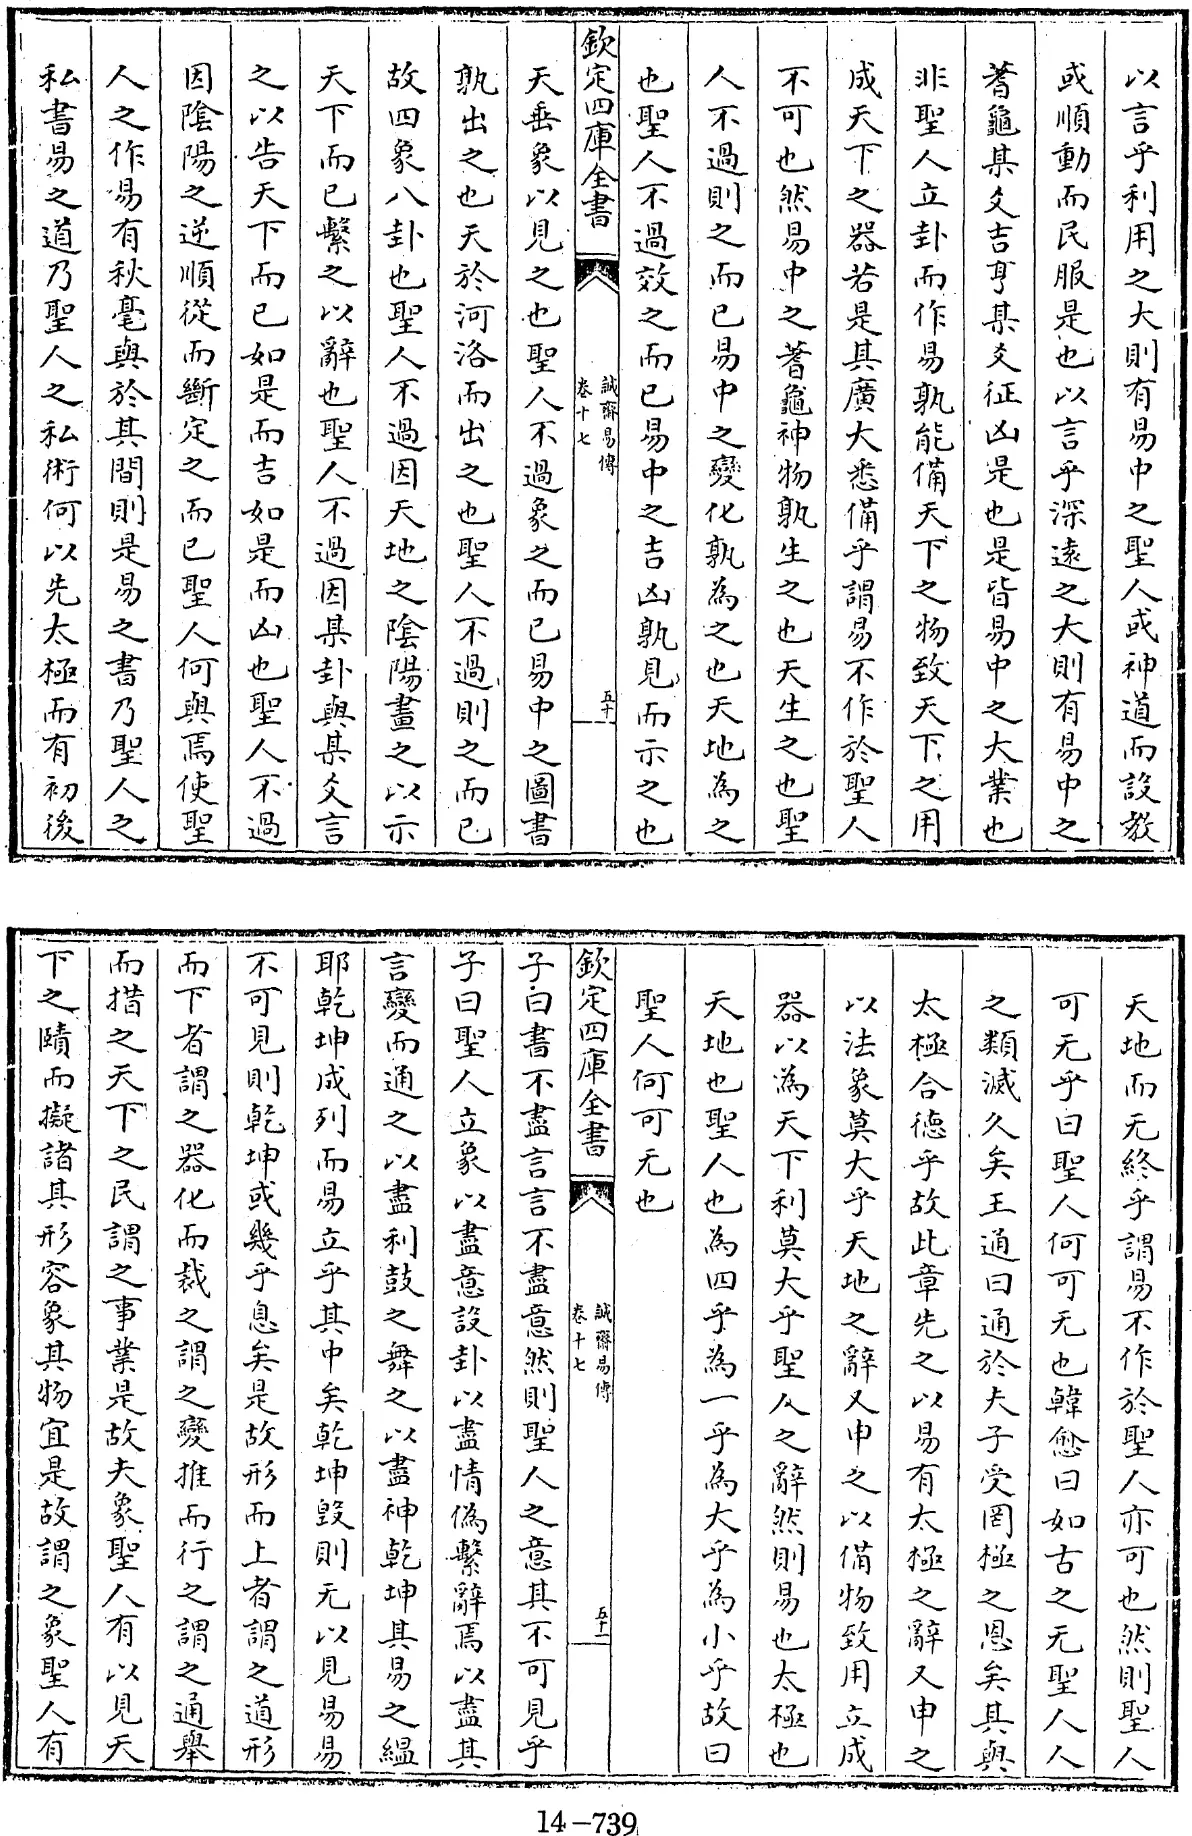 以言乎利用之大則有易中之聖人或神道而設教
或順動而民服是也以言乎深遠之大則有易中之
蓍龜某爻吉亨某爻征凶是也是皆易中之大業也
非聖人立卦而作易孰能備天下之物致天下之用
成天下之器若是其廣大悉備乎謂易不作於聖人
不可也然易中之蓍龜神物孰生之也天生之也聖
人不過則之而已易中之變化孰為之也天地為之
也聖人不過效之而已易中之吉凶孰見而示之也
欽定四庫全書
誠齋易傳
卷十七
五十
天垂象以見之也聖人不過象之而已易中之圖書
孰出之也天於河洛而出之也聖人不過則之而已
故四象八卦也聖人不過因天地之陰陽畫之以示
天下而已繫之以辭也聖人不過因某卦與某爻言
之以告天下而已如是而吉如是而凶也聖人不過
因陰陽之逆順從而斷定之而已聖人何與焉使聖
人之作易有秋毫與於其間則是易之書乃聖人之
私書易之道乃聖人之私術何以先太極而有初後
天地而无終乎謂易不作於聖人亦可也然則聖人
可无乎曰聖人何可无也韓愈曰如古之无聖人人
之類滅久矣王通曰通於夫子受罔極之恩矣其與
太極合德乎故此章先之以易有太極之辭又申之
以法象莫大乎天地之辭又申之以備物致用立成
器以為天下利莫大乎聖人之辭然則易也太極也
天地也聖人也為四乎為一乎為大乎為小乎故曰
聖人何可无也
欽定四庫全書
誠齋易傳
卷十七
五十一
子曰書不盡言言不盡意然則聖人之意其不可見乎
子曰聖人立象以盡意設卦以盡情偽繫辭焉以盡其
言變而通之以盡利鼓之舞之以盡神乾坤其易之縕
耶乾坤成列而易立乎其中矣乾坤毀則无以見易易
不可見則乾坤或幾乎息矣是故形而上者謂之道形
而下者謂之器化而裁之謂之變推而行之謂之通舉
而措之天下之民謂之事業是故夫象聖人有以見天
下之賾而擬諸其形容象其物宜是故謂之象聖人有
14-739